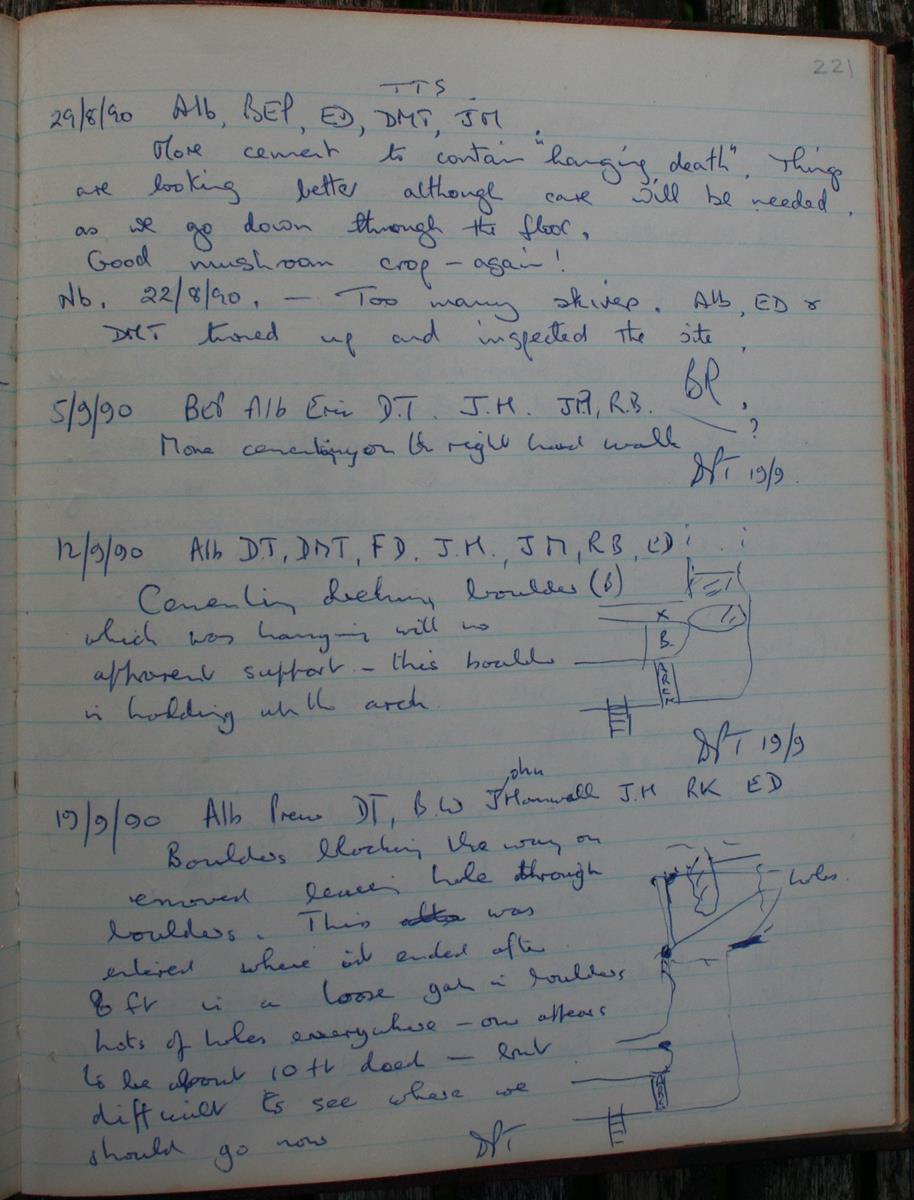 221
TTS
29/8/90 Alb, BEP, ED, DMT, JM.
More cement to contain "hanging death". Things
are looking better although care will be needed.
as we go down through the floor.
Good mushroom crop - again!
Nb. 22/8/90. - Too many skives. Alb, ED &
DMT turned up and inspected the site.
BP.
5/9/90 BEP Alb Eric D.T. J.H. JM, R.B.
?
More cementing on the right hand wall
DPT 19/9.
12/9/90 Alb DT, DMT, FD. J.H., JM, RB, ED
Cementing boulder (B)
which was hanging will no
apparent support - this boulder
is holding up the arch.
X
B.
ARCH
DPT 19/9
John
19/9/90 Alb Prew DT, B.W J.H RK ED
Boulders blocking the way on
removed leaving hole through
boulders. This was
entered where it ended after
8 ft in a loose gap in boulders
Lots of holes everywhere - one appears
to be about 10 ft deed - but
difficult to see where we
should go now
DPT
holes.
ARCH